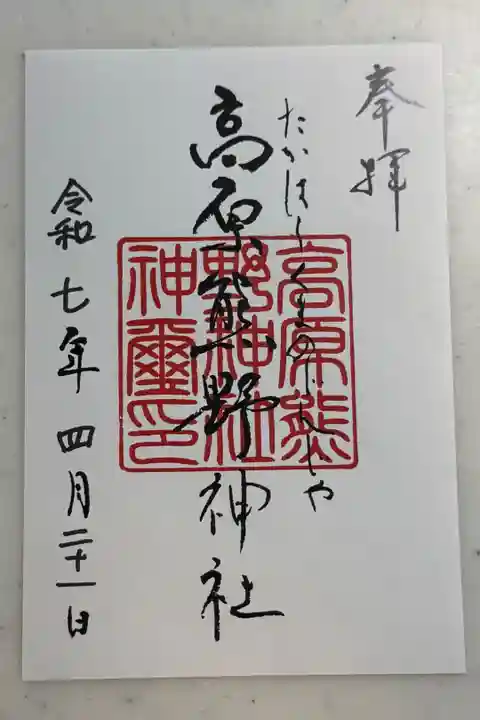 奉拝
たかはらくまのじんじや
高原熊野神社
高原熊
野神社
神璽印
令和七年四月二十一日